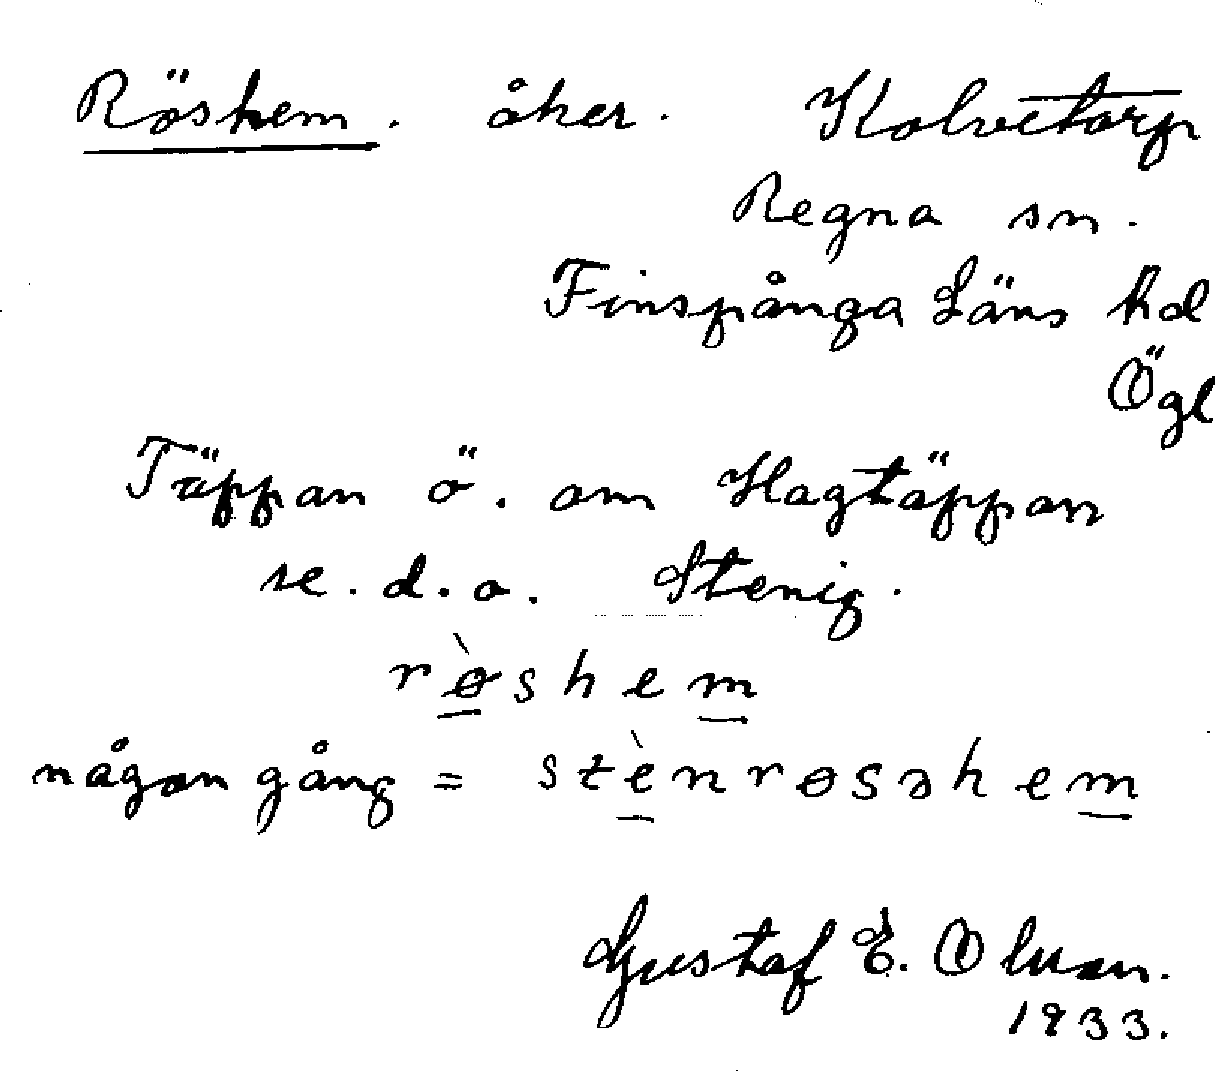 Röshem. åker. Kolvetorp
Regna sn.
Finspånga Läns hd
Ögl
Täppan ö. om Hagtäppan
se. d.o. Stenig.
rø̀shem
någon gång = stènrøsəhem
Gustaf E.
1933.